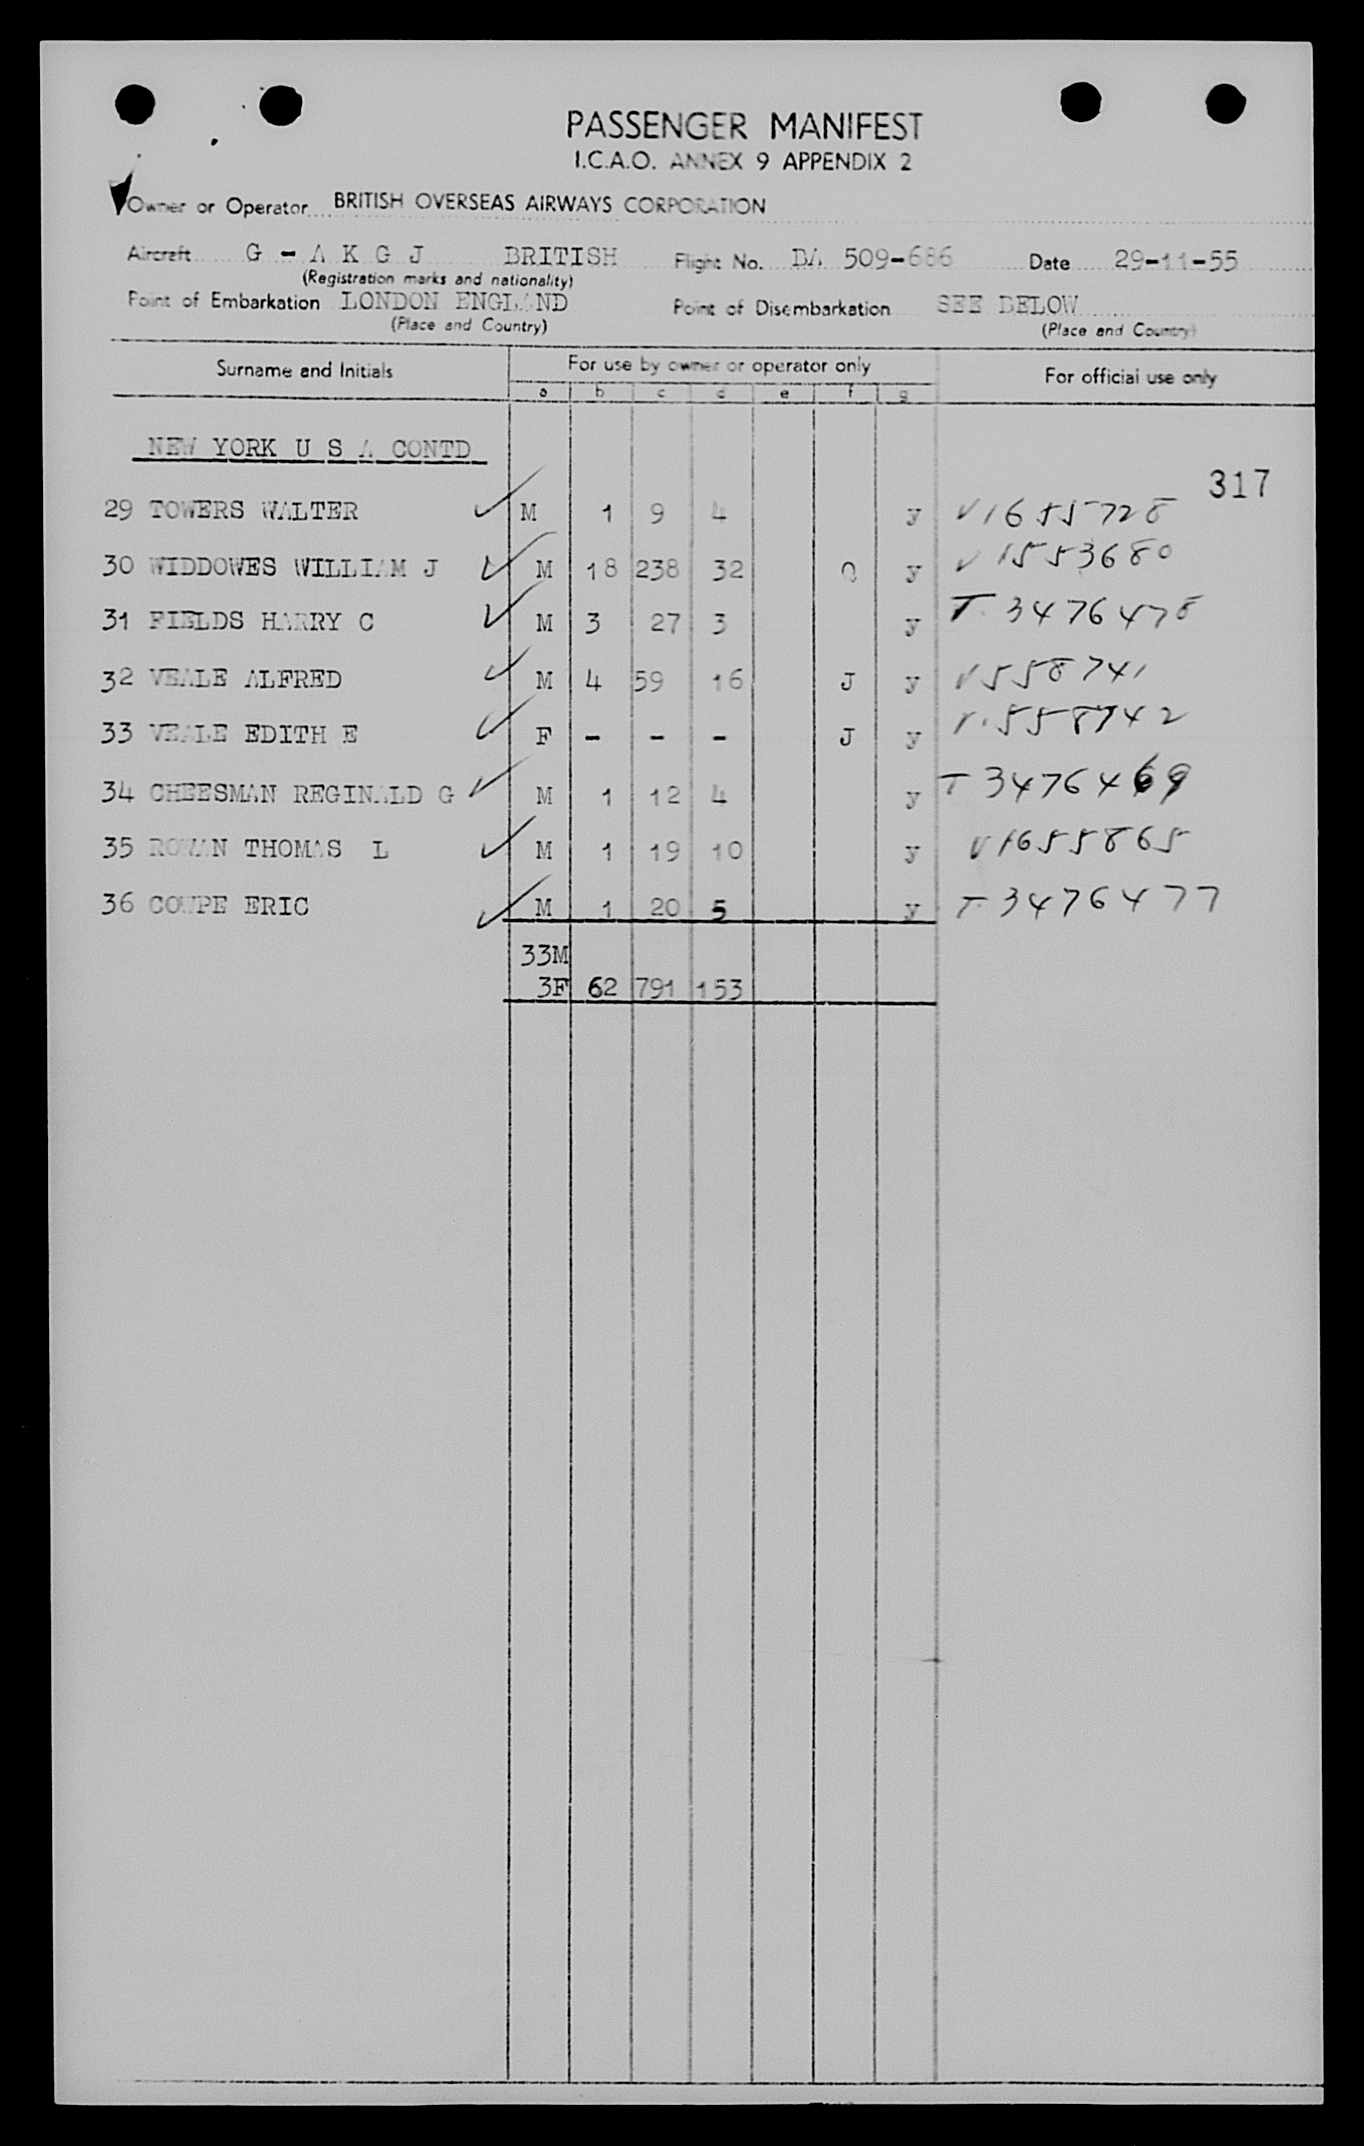 PASSENGER MANIFEST
I.C.A.O. ANNEX 9 APPENDIX 2
Owner or Operator BRITISH OVERSEAS AIRWAYS CORPORATION
Aircraft G - A K G J BRITISH Flight No. BA 509-686 Date 29-11-55
(Registration marks and nationality)
Point of Embarkation LONDON ENGLAND Point of Disembarkation SEE BELOW
(Place and Country) (Place and Country)
Surname and Initials For use by owner or operator only For official use only
a b c d e f g
NEW YORK U S A CONTD
317
29 TOWERS WALTER M 1 9 4 y V1655728
30 WIDDOWES WILLIAM J M 18 238 32 O y V 1553680
31 FIELDS HARRY C M 3 27 3 y T. 3476478
32 VEALE ALFRED M 4 59 16 J y V558741
33 VEALE EDITH E F - - - J y V.558742
34 CHEESMAN REGINALD G M 1 12 4 y T 3476469
35 ROWAN THOMAS L M 1 19 10 y V1655865
36 COUPE ERIC M 1 20 5 y T. 3476477
33M
3F 62 791 153